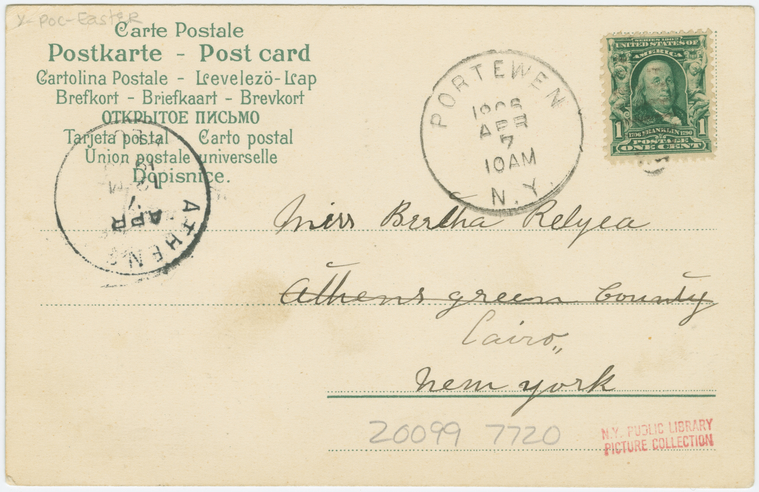 x poc-Easter
Carte Postale
Postkarte - Post card
Cartolina Postale - Levelezö-Lap
Brefkort - Briefkaart - Brevkort
ОТКРЫТОЕ ПИСЬМО
Tarjeta postal - Carto postal
Union postale universelle
Dopisnice.
PORTEWEN
1906
APR
7
10AM
N.Y.
SERIES 1902
UNITED STATES OF
AMERICA
1706 FRANKLIN 1790
1 1
POSTAGE
ONE CENT
ATHENS
APR
7
Miss Bertha Relyea
Athens green County
Cairo,,
New york
20099 7720
N.Y. PUBLIC LIBRARY
PICTURE COLLECTION